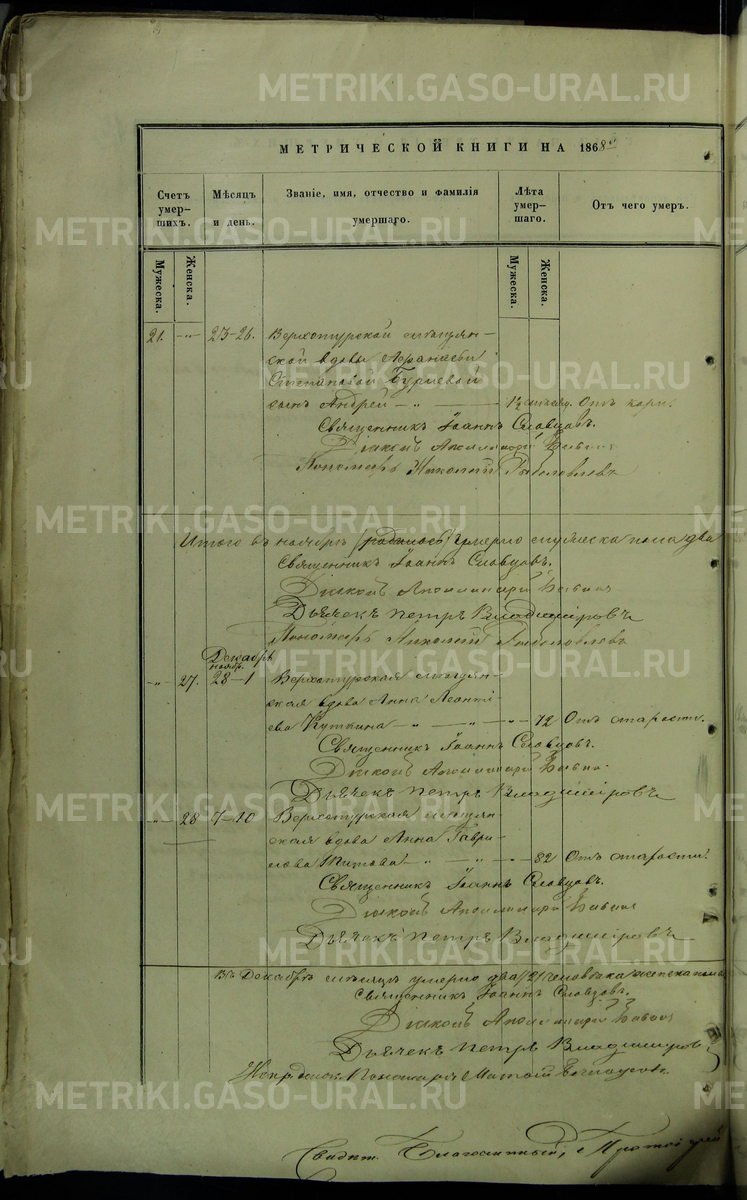 МЕТРИЧЕСКОЙ КНИГИ НА 1868
Счетъ умер-шихъ.
Мѣсяцъ и день.
Званіе, имя, отчество и фамилія умершаго.
Лѣта умер-шаго.
Отъ чего умеръ.
Мужеска.
Женска.
Мужеска.
Женска.
21. -„- 23-26. Верхотурской мѣщан-
ской вдовы
сынъ Андрей Отъ кори.
Священникъ Іоаннъ Словцовъ.
Діаконъ Аполлинарій
Пономарь Николай
Итого въ ноябрѣ умерло мужеска пола два
Священникъ Іоаннъ Словцовъ.
Діаконъ Аполлинарій
Дьячекъ Петръ Владиміровъ
Пономарь Николай
Декабрь
ноябр.
-„- 27. 28-1 Верхотурская мѣщан-
ская вдова Анна Леонті-
ева 72 Отъ старости.
Священникъ Іоаннъ Словцовъ.
Діаконъ Аполлинарій
Дьячекъ Петръ Владиміровъ
-„- 28 7-10 Верхотурская мѣщан-
ская вдова Анна Гаври-
лова Титова 82 Отъ старости.
Священникъ Іоаннъ Словцовъ.
Діаконъ Аполлинарій
Дьячекъ Петръ Владиміровъ
Въ Декабрѣ мѣсяцѣ умерло два /2/ человѣка женска пола
Священникъ Іоаннъ Словцовъ.
Діаконъ Аполлинарій
Дьячекъ Петръ Владиміровъ
Пономаря
Благочинный, Протоіерей
METRIKI.GASO-URAL.RU